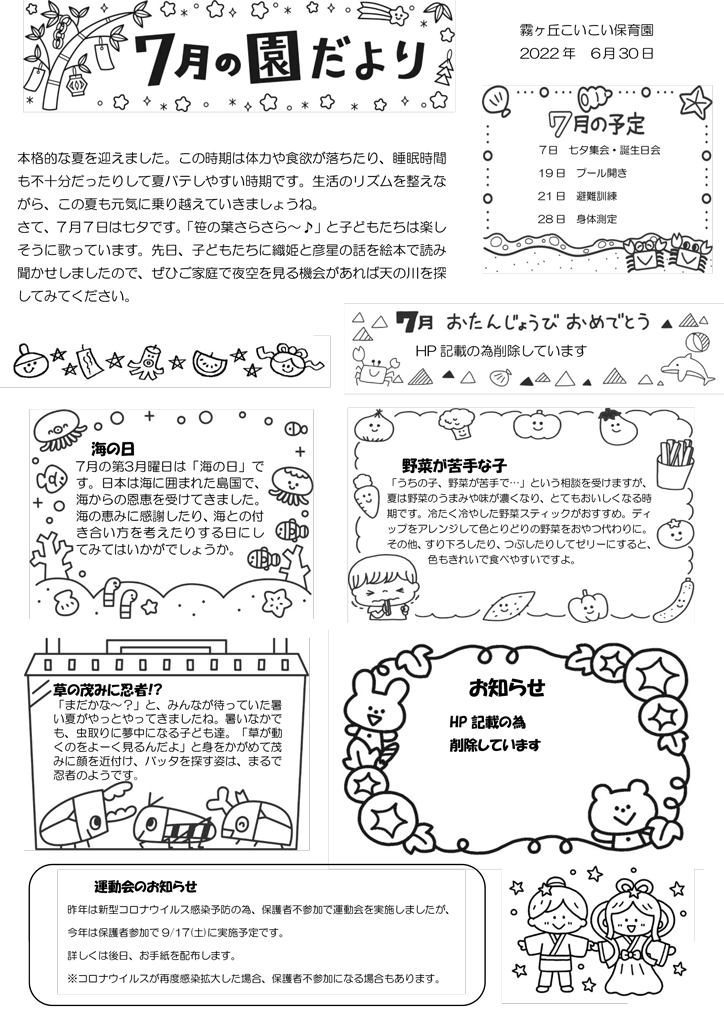 7月の園だより
霧ヶ丘こいこい保育園
2022年 6月30日
7月の予定
7日 七夕集会・誕生日会
19日 プール開き
21日 避難訓練
28日 身体測定
本格的な夏を迎えました。この時期は体力や食欲が落ちたり、睡眠時間
も不十分だったりして夏バテしやすい時期です。生活のリズムを整えな
がら、この夏も元気に乗り越えていきましょうね。
さて、7月7日は七夕です。「笹の葉さらさら～♪」と子どもたちは楽し
そうに歌っています。先日、子どもたちに織姫と彦星の話を絵本で読み
聞かせしましたので、ぜひご家庭で夜空を見る機会があれば天の川を探
してみてください。
7月 おたんじょうび おめでとう
HP記載の為削除しています
海の日
7月の第3月曜日は「海の日」で
す。日本は海に囲まれた島国で、
海からの恩恵を受けてきました。
海の恵みに感謝したり、海との付
き合い方を考えたりする日にし
てみてはいかがでしょうか。
野菜が苦手な子
「うちの子、野菜が苦手で…」という相談を受けますが、
夏は野菜のうまみや味が濃くなり、とてもおいしくなる時
期です。冷たく冷やした野菜スティックがおすすめ。ディ
ップをアレンジして色とりどりの野菜をおやつ代わりに。
その他、すり下ろしたり、つぶしたりしてゼリーにすると、
色もきれいで食べやすいですよ。
草の茂みに忍者!?
「まだかな～？」と、みんなが待っていた暑
い夏がやっとやってきましたね。暑いなかで
も、虫取りに夢中になる子ども達。「草が動
くのをよーく見るんだよ」と身をかがめて茂
みに顔を近付け、バッタを探す姿は、まるで
忍者のようです。
お知らせ
HP記載の為
削除しています
運動会のお知らせ
昨年は新型コロナウイルス感染予防の為、保護者不参加で運動会を実施しましたが、
今年は保護者参加で9/17(土)に実施予定です。
詳しくは後日、お手紙を配布します。
※コロナウイルスが再度感染拡大した場合、保護者不参加になる場合もあります。